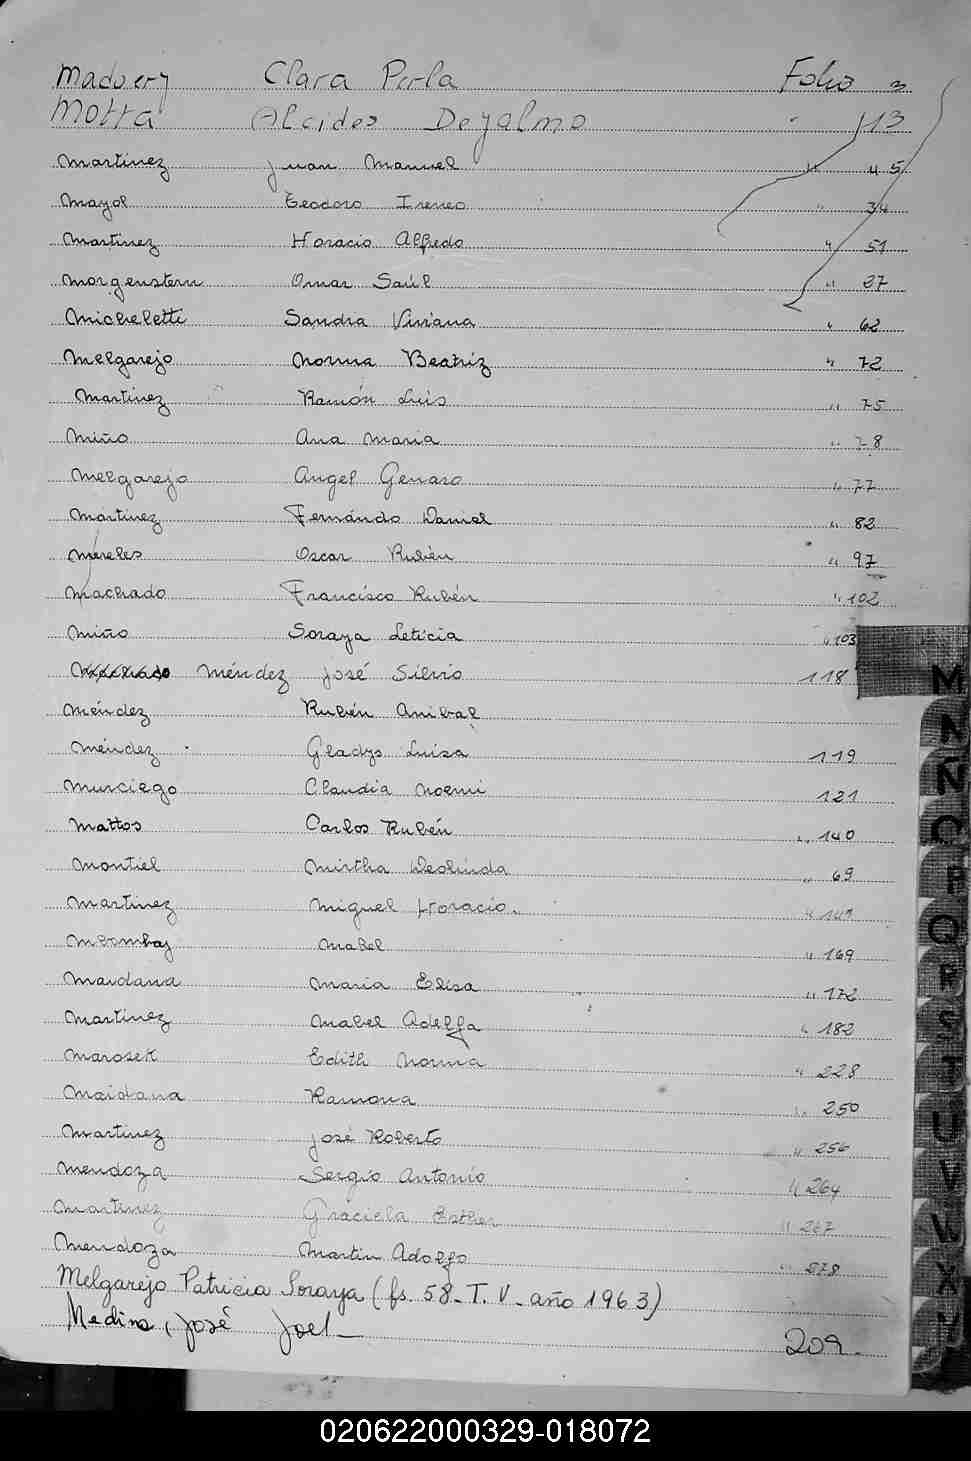 Madvery Clara Perla Folio 3
Motta Alcides Deyalmo " 13
Martinez Juan Manuel " 45
Mayol Teodoro Ireneo " 34
Martinez Horacio Alfredo " 51
Morgenstern Omar Saúl " 27
Micheletti Sandra Viviana " 62
Melgarejo Norma Beatriz " 72
Martinez Ramón Luis " 75
Miño Ana Maria " 78
Melgarejo Angel Genaro " 77
Martinez Fernándo Daniel " 82
Méreles Oscar Rubén " 97
Machado Francisco Rubén " 102
Miño Soraya Leticia " 103
Méndez José Silvio 118
Méndez Rubén Anibal
Méndez Gladys Luisa 119
Murciego Claudia Noemi 121
Mattos Carlos Rubén " 140
Montiel Mirtha Deolinda " 69
Martinez Miguel Horacio. " 149
Mbombaj Mabel " 169
Maidana Maria Elisa " 172
Martinez Mabel Adelfa " 182
Marosek Edith Norma " 228
Maidana Ramona " 250
Martinez José Roberto " 256
Mendoza Sergio Antonio " 264
Martinez Graciela Esther " 267
Mendoza Martin Adolfo " 278
Melgarejo Patricia Soraya (fs. 58. T. V. año 1963)
Medina, José Joel 209.
M
N
Ñ
O
P
Q
R
S
T
U
V
W
X
Y
020622000329-018072